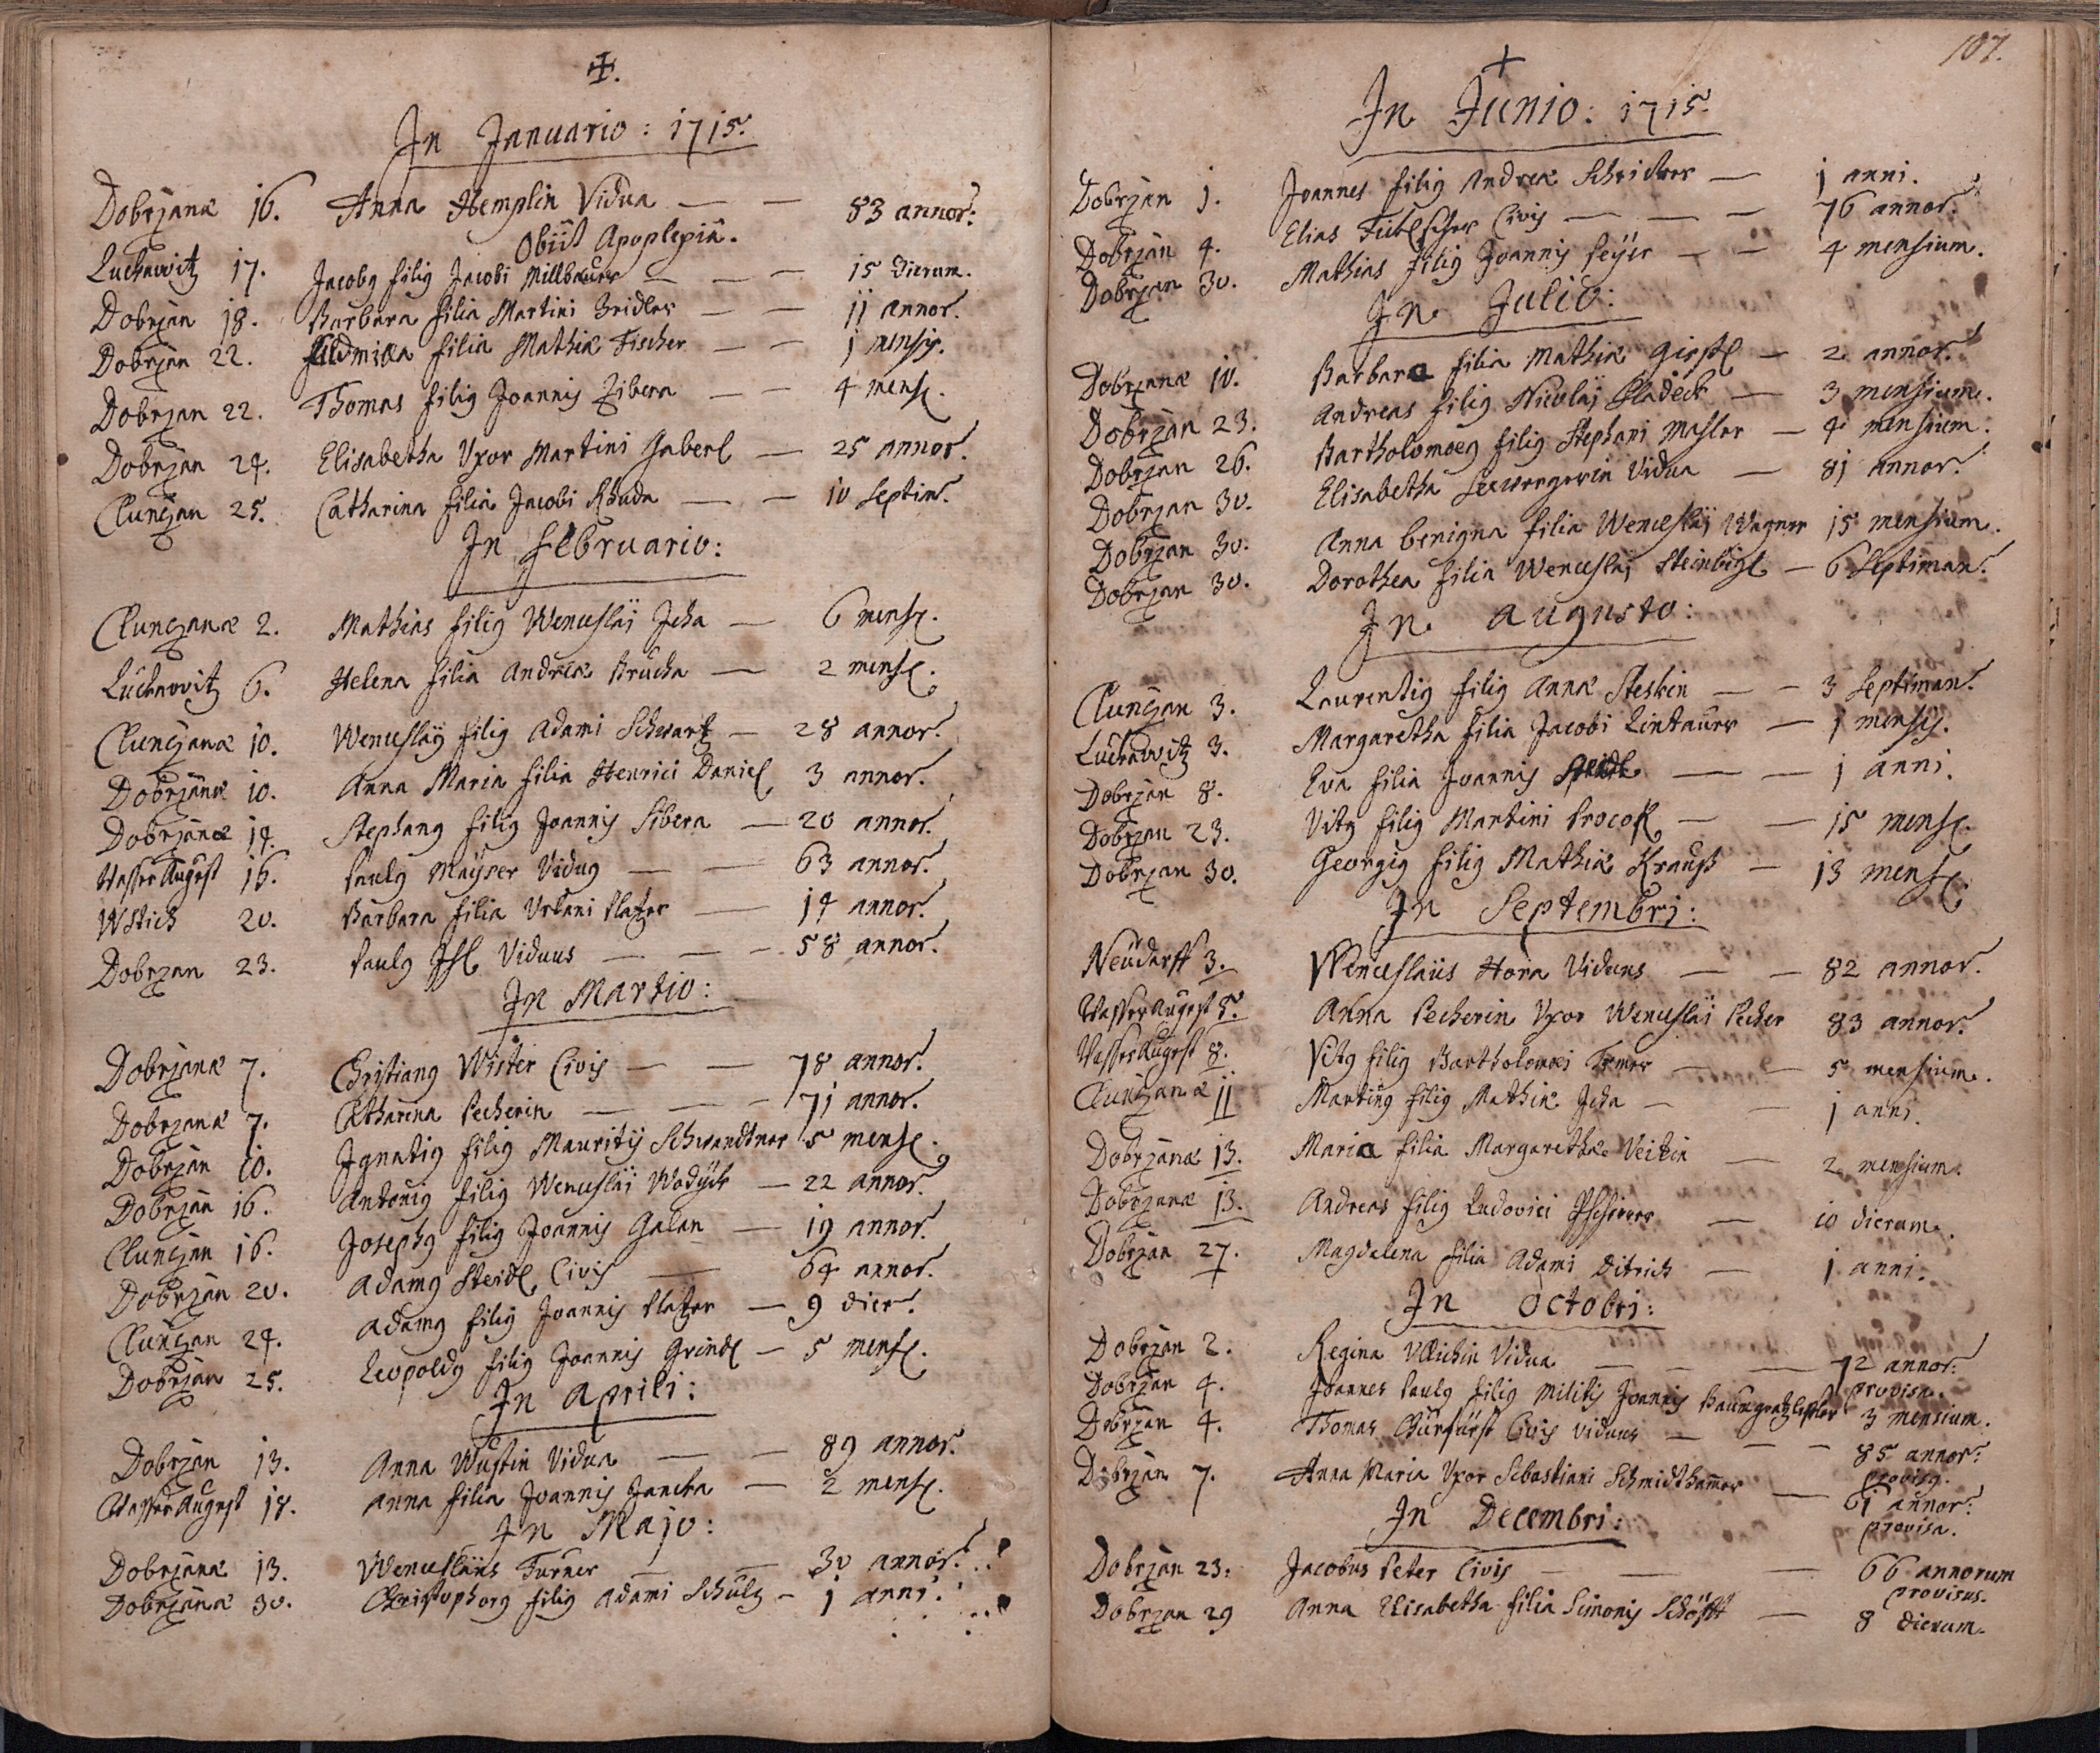 ✠.
In Januario: 1715.
Dobrzanæ 16. Anna Hemplin Vidua — — 83 annor:
Obiit Apoplexiâ.
Luchawitz 17. Jacobg filig Jacobi Millbaurr — — 15 Dierum.
Dobrzan 18. Barbara filia Martini Bridler — — 11 annor.
Dobrzan 22. filia Mathiæ Fischer — — 1 mensis.
Dobrzan 22. Thomas filig Joannis Zibera — — 4 mens.
Dobrzan 24. Elisabetha Vxor Martini Haberl — 25 annor.
Chunzan 25. Catharina filia Jacobi Rhuda — — 10 septim.
In Februario:
Chunzanæ 2. Mathias filig Wenceslai Jcha — 6 mens.
Luchawitz 6. Helena filia Andreæ Brucha — 2 mens.
Chunzanæ 10. Wenceslag filig Adami Schwartz — 28 annor.
Dobrzanæ 10. Anna Maria filia Henrici Daniel 3 annor.
Dobrzanæ 14. Stephang filig Joannis Sibera — 20 annor.
WasserAugest 16. Paulg Mayser Vidug — — 63 annor.
Wstich 20. Barbara filia Urbani Platzer — 14 annor.
Dobrzan 23. Paulg Jsl Viduus — — — 58 annor.
In Martio:
Dobrzanæ 7. Christiang Wister Civis — — 78 annor.
Dobrzanæ 7. Catharina Pecherin — — — 71 annor.
Dobrzan 10. Ignatig filig Mauritij Schwandtner 5 mens.
Dobrzan 16. Antonig filig Wenceslai Wodyck — 22 annor.
Chunzan 16. Josephg filig Joannis Galan — 19 annor.
Dobrzan 20. Adamg Steidl Civis — 64 annor.
Chunzan 24. Adamg filig Joannis Platzer — 9 dier.
Dobrzan 25. Leopoldg filig Joannis Grindl — 5 mens.
In Aprili:
Dobrzan 13. Anna Wustin Vidua — — 89 annor.
WasserAugest 18. Anna filia Joannis Jancka — 2 mens.
In Majo:
Dobrzanæ 13. Wenceslaus Turner — — 30 annor.
Dobrzanæ 30. Christophorg filig Adami Schultz — 1 anni.
107.
+
In Junio: 1715.
Dobrzan 1. Joannes filig Andreæ Schricker — 1 anni.
Dobrzan 4. Elias Civis — — — 76 annor.
Dobrzan 30. Mathias filig Joannis Peyer — — 4 mensium.
In Julio:
Dobrzanæ 10. Barbara filia Mathiæ Girstl — 2 annor.
Dobrzan 23. Andreas filig Nicolaj Hladeck — 3 mensium.
Dobrzan 26. Bartholomaeg filig Stephani Masler — 4 mensium.
Dobrzan 30. Elisabetha Vidua — 81 annor.
Dobrzan 30. Anna benigna filia Wenceslaj Wagner 15 mensium.
Dobrzan 30. Dorothea filia Wenceslaj Steinbigl — 6 Septiman.
In Augusto:
Chunzan 3. Laurentig filig Annæ Steskin — — 3 septiman.
Luchawitz 3. Margaretha filia Jacobi Lintaurr — 1 mensis.
Dobrzan 8. Eva filia Joannis Steidl — — 1 anni.
Dobrzan 23. Vitg filig Martini Procop — — 15 mens.
Dobrzan 30. Georgig filig Mathiæ Krauss — 13 mens.
In Septembri:
Neudorff 3. Wenceslaus Hora Viduus — — 82 annor.
WasserAugest 5. Anna Pecherin Vxor Wenceslai Pecher 83 annor.
WasserAugest 8. Vitg filig Bartholomæi — — 5 mensium.
Chunzanæ 11 Marting filig Mathiæ Jcha — — 1 anni.
Dobrzanæ 13. Maria filia Margarethæ Veitin — 2 mensium.
Dobrzanæ 13. Andreas filig Ludovici — 10 dierum.
Dobrzan 27. Magdalena filia Adami Ditrich — 1 anni.
In Octobri:
Dobrzan 2. Regina Vidua — — — 72 annor:
provisa.
Dobrzan 4. Joannes Paulg filig Militis Joannis 3 mensium.
Dobrzan 4. Thomas Churfürst Civis viduus — — — 85 annor:
provisg.
Dobrzan 7. Anna Maria Vxor Sebastiani Schmidthamer — 61 annor:
provisa.
In Decembri:
Dobrzan 23. Jacobus Peter Civis — — — 66 annorum
provisus.
Dobrzan 29 Anna Elisabetha filia Simonis Schöfft — 8 dierum.